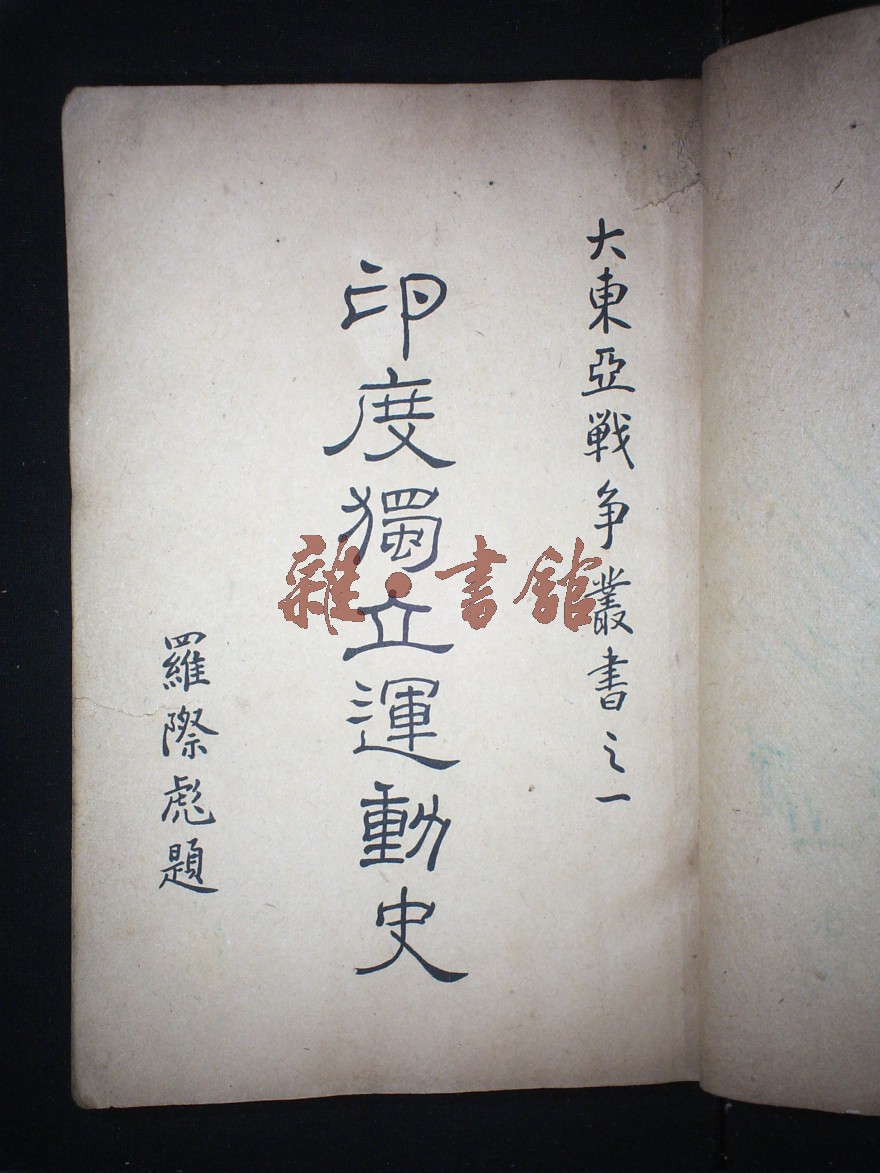 大東亞戦争叢書之一
印度獨立運動史
羅際彪題
雜·書館